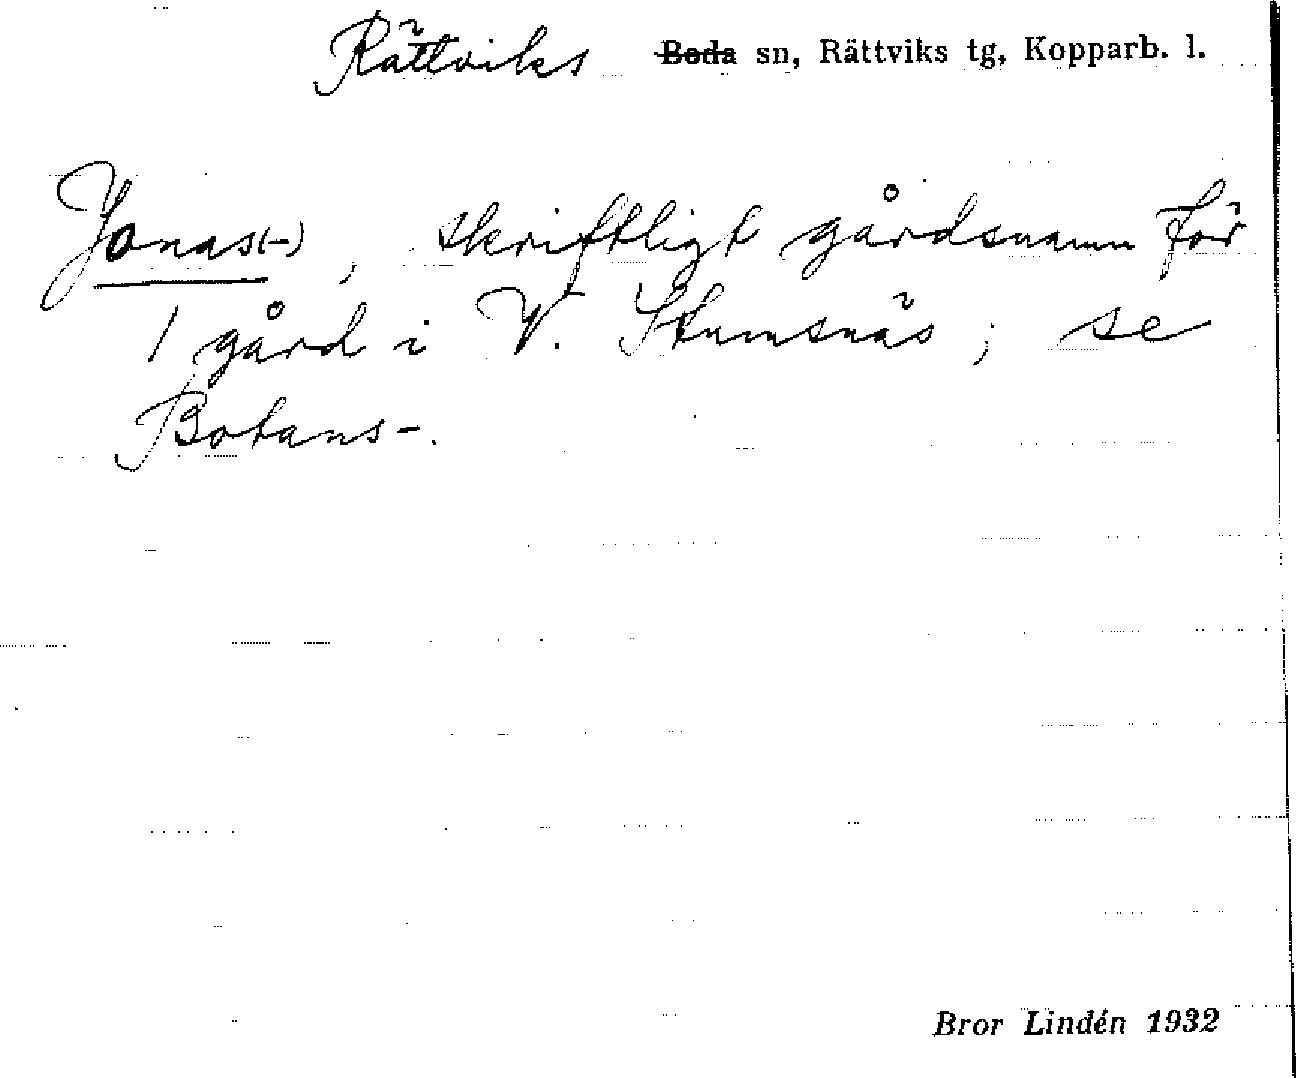 Rättviks Boda sn, Rättviks tg, Kopparb. l.
Jonas(-), skriftligt gårdsnamn för
1 gård i V. Stumsnäs; se
Botans-.
Bror Lindén 1932